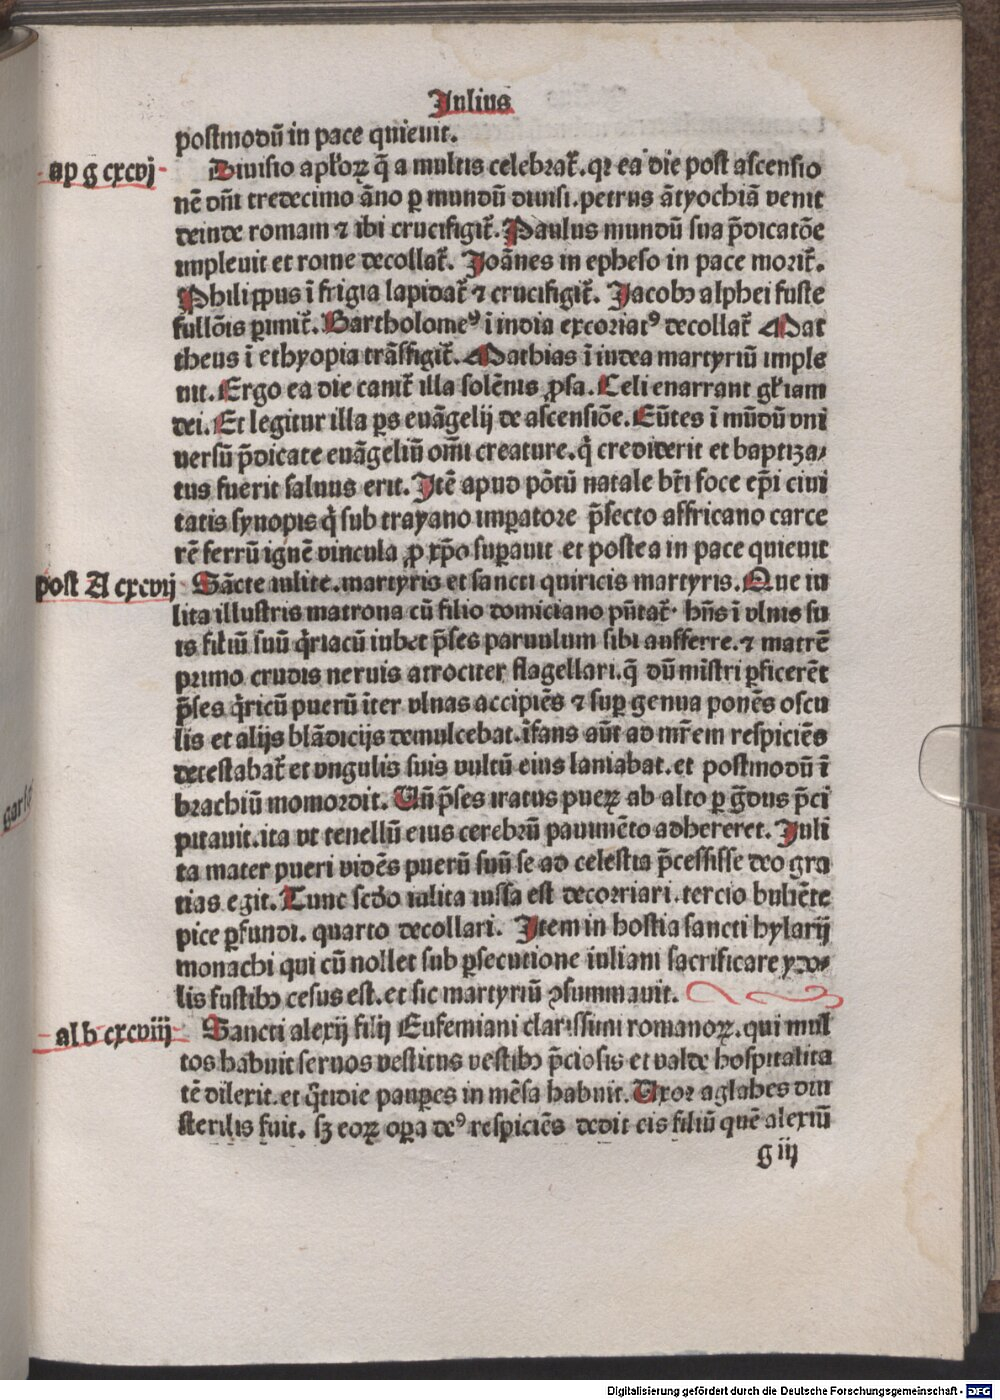 Julius
postmodū in pace quieuit.
ap g cxcvj
Diuisio apl'oꝝ q̄ a multis celebrat̄. qꝛ ea die post ascensio
nē dn̄i tredecimo āno ꝑ mundū diuisi. petrus ātyochiā venit
deinde romam ⁊ ibi crucifigit̄. Paulus mundū sua p̄dicatōe
impleuit et rome decollat̄. Joānes in epheso in pace morit̄.
Philippus ī frigia lapidat̄ ⁊ crucifigit̄. Jacobꝰ alphei fuste
fullōis ꝑimit̄. Bartholomeꝰ ī india excoriatꝰ decollat̄ Mat
theus ī ethyopia trāsfigit̄. Mathias ī iudea martyriū imple
uit. Ergo ea die canit̄ illa solēnis ꝓsa. Celi enarrant gl'iam
dei. Et legitur illa ꝑs euāgelij de ascensiōe. Eūtes ī mūdū vni
uersū p̄dicate euāgeliū om̄i creature. q̇ crediderit et baptiza⸗
tus fuerit saluus erit. Jtē apud pōtū natale bt̄i foce ep̄i ciui
tatis synopis q̇ sub trayano imꝑatore p̄fecto affricano carce
rē ferrū ignē vincula ꝓ xp̄o suꝑauit et postea in pace quieuit
post A cxcvij
Sācte iulite. martyris et sancti quiricis martyris. Que iu
lita illustris matrona cū filio domiciano pn̄tat̄. hn̄s ī vlnis su
is filiū suū q̇riacū iubet p̄ses paruulum sibi aufferre. ⁊ matrē
primo crudis neruis atrociter flagellari. q̄ dū mīstri ꝑficerēt
p̄ses q̇ricū puerū īter vlnas accipiēs ⁊ suꝑ genua ponēs oscu
lis et alijs blādicijs demulcebat. īfans aūt ad mr̄em respiciēs
detestabat̄ et vngulis suis vultū eius laniabat. et postmodū ī
brachiū momordit. Vn̄ p̄ses iratus pueꝝ ab alto ꝑ ḡdus p̄ci
pitauit. ita vt tenellū eius cerebrū pauimēto adhereret. Juli
ta mater pueri vidēs puerū suū se ad celestia p̄cessisse deo gra
tias egit. Tunc scd̄o iulita iussa est decorriari. tercio buliēte
pice ꝑfundi. quarto decollari. Jtem in hostia sancti hylarij
monachi qui cū nollet sub ꝑsecutione iuliani sacrificare ydo⸗
lis fustibꝰ cesus est. et sic martyriū ꝯsummauit.
al b cxcviij
Sancti alexij filij Eufemiani clarissimi romanoꝝ. qui mul
tos habuit seruos vestitus vestibꝰ p̄ciosis et valde hospitalita
tē dilexit. et q̄tidie pauꝑes in mēsa habuit. Vxor aglabes diu
sterilis fuit. sꝫ eoꝝ oꝑa deꝰ respiciēs dedit eis filiū quē alexiū
g iij
Digitalisierung gefördert durch die Deutsche Forschungsgemeinschaft - DFG